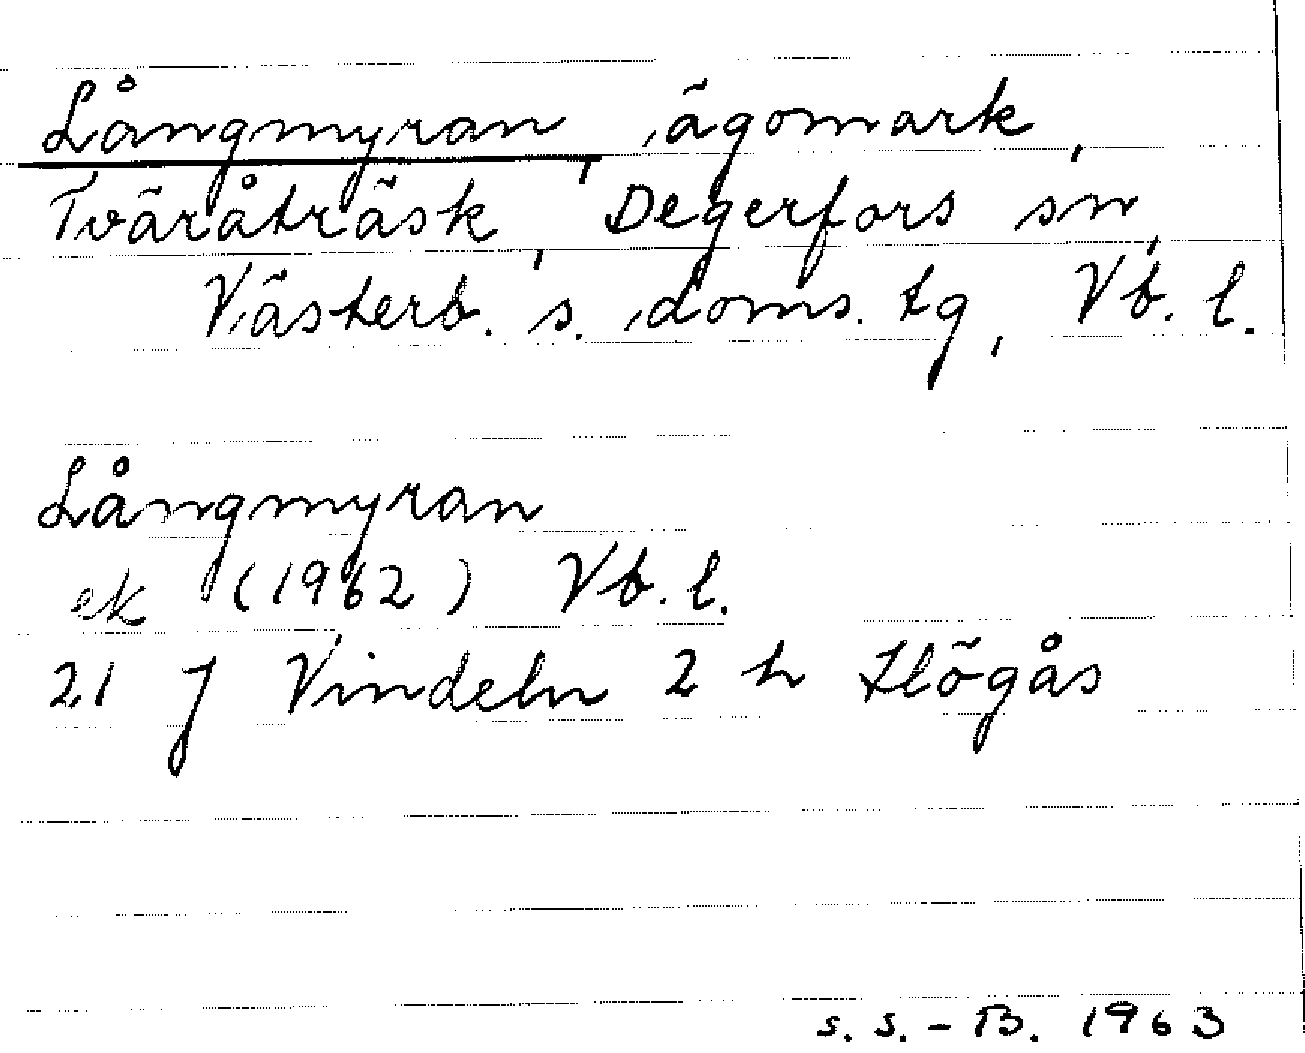 Långmyran, ägomark,
Tväråträsk, Degerfors sn,
Västerb. s. doms. tg, Vb. l.
Långmyran
ek (1962) Vb. l.
21 J Vindeln 2 h Högås
s. s. - B. 1963